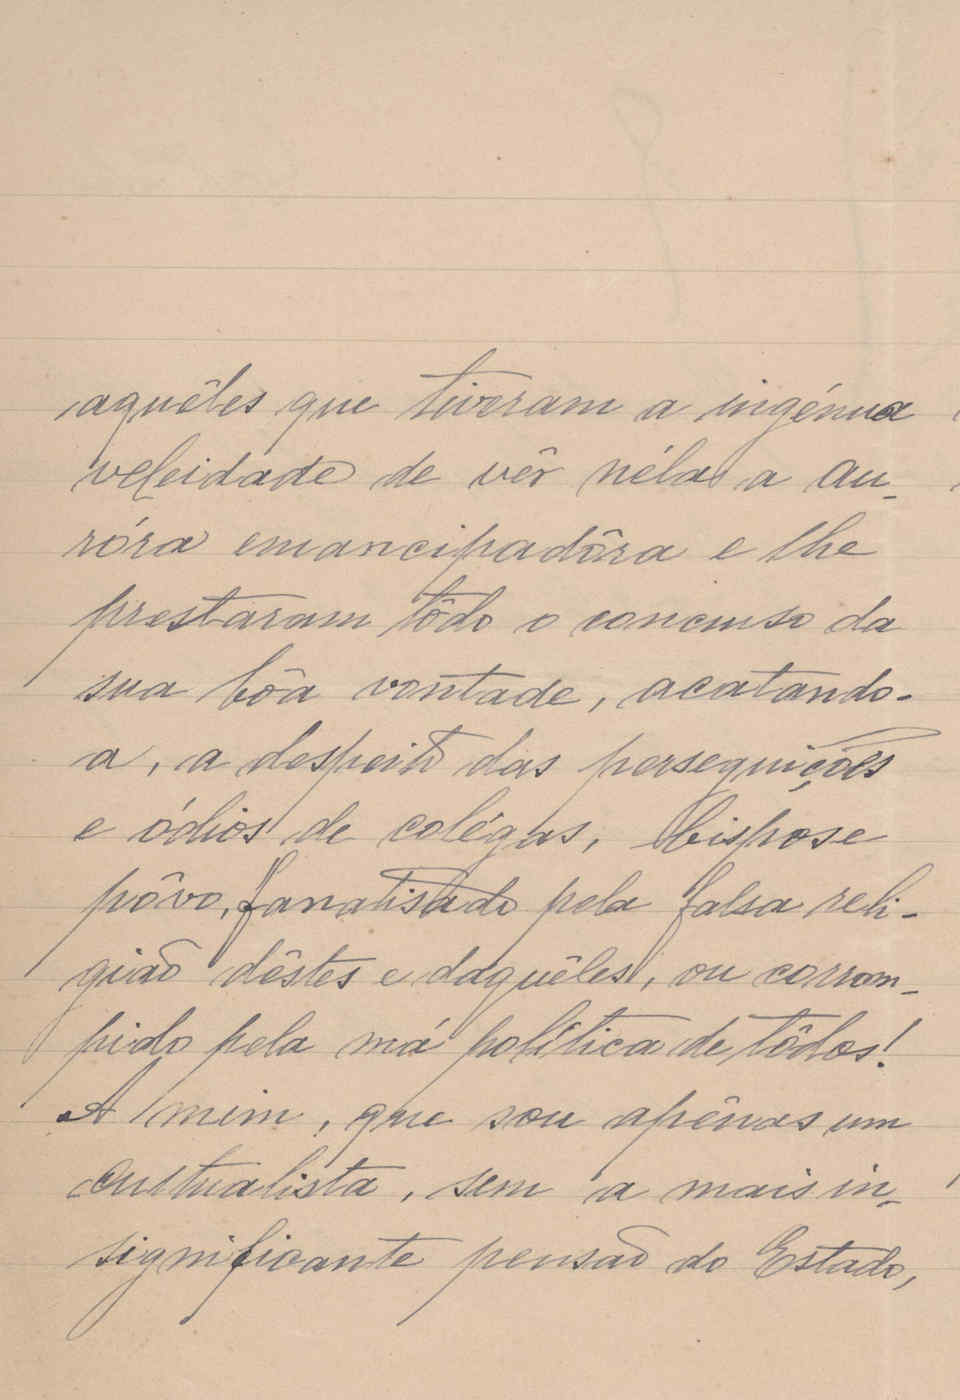 aquêles que tiveram a ingénua
veleidade de vêr nélas a au-
róra emancipadôra e lhe
prestaram tôdo o concurso da
sua bôa vontade, acatando-
a, a despeito das perseguições
e ódios de colégas, bispos e
pôvo, fanatisado pela falsa reli-
gião dêstes e daquêles, ou corrom-
pido pela má política de tôdos!
A mim, que sou apênas um
cultualista, sem a mais in-
significante pensão do Estado,